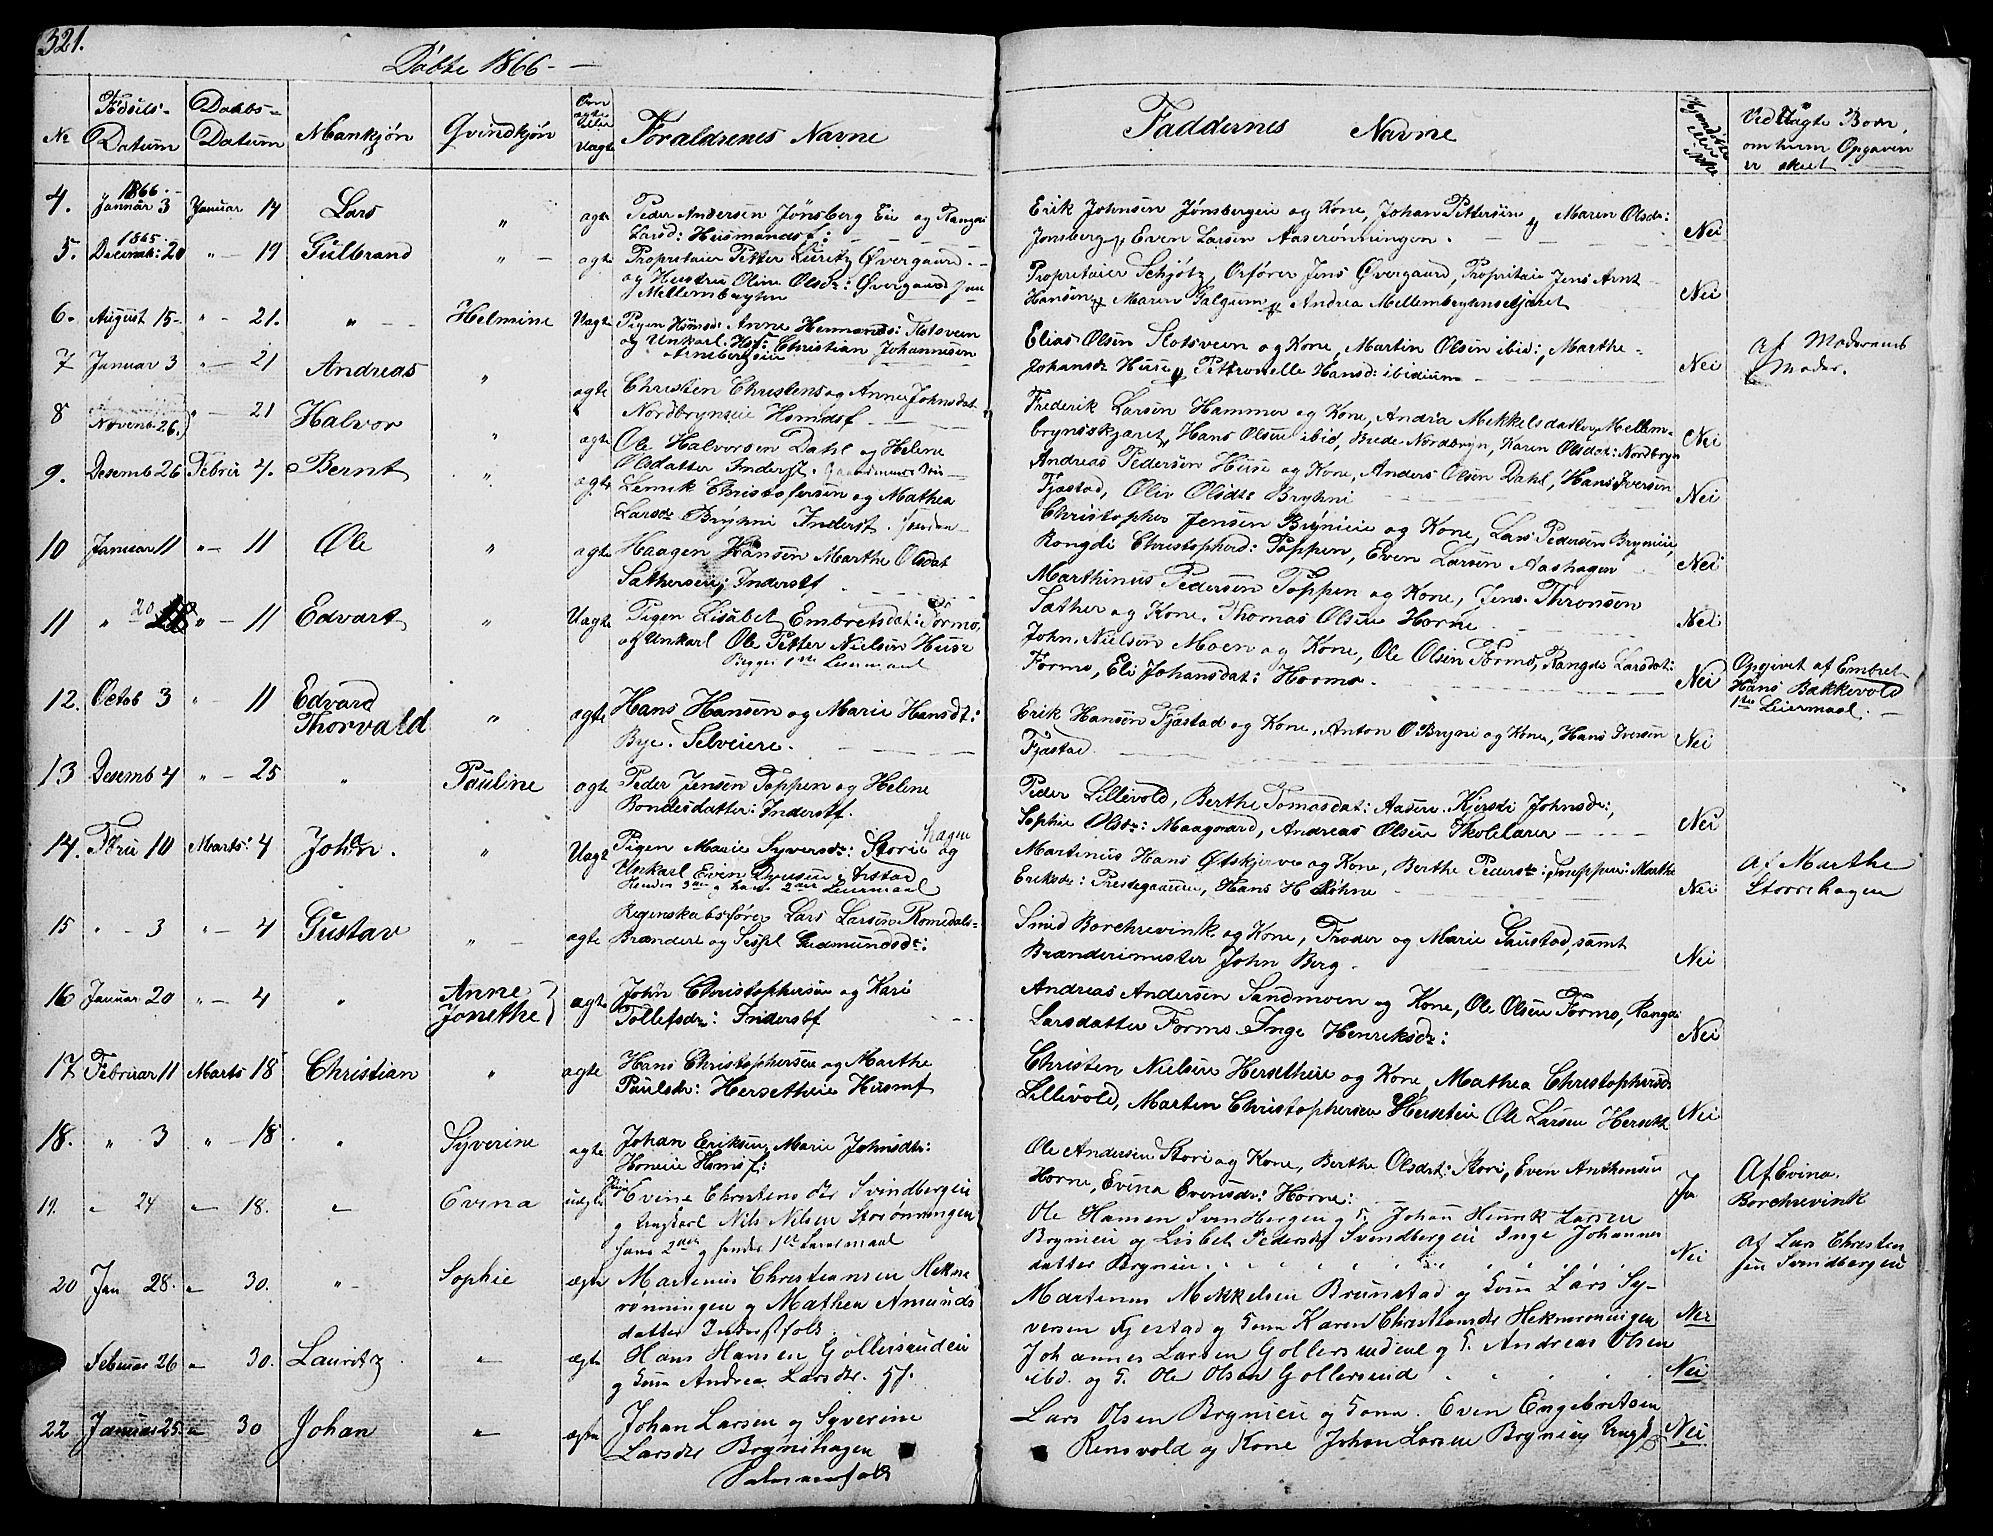 321.
Døbte 1866 —
No Fødsels- Datum Daabs- Datum Mankjøn Qvindkjøn Om ægte eller Uægte Forældrenes Navne Faddernes Navne Hjemdøbt eller ikke Ved Uægte Børn, om hvem Opgaven er skeet
4. 1866 Januar 3 Januar 14 Lars " ægte Peder Andersen Jønsberg Eie og Rangdi
Larsd: Husmandsf:
Erik Johnsen Jønsbergeie og Kone, Johan Pettersen og Maren Olsdr:
Jønsberg, Even Larsen Aaserønningen. Nei
5. 1865 Decemb: 20 " — 19 Gulbrand " — ægte Proprietaier Petter Lüritz Øvergaard
og Hustru Oline Olsdr: Øvergaard
Mellembryhn
Proprietaier Schjøtz, Jens Øvergaard, Propritair Jens Arnt
Hansen, Maren Galgum, Andrea Mellembrynskjæret Nei
6. August 15 " — 21. " — Helmine Uægte Pigen Anne Hermands: Slotsveen
og Unkarl Christian Johannesen
Arnebergeie
Elias Olsen Slotsveen og Kone, Martin Olsen ibid:, Marthe
Johansdr Huse, Pettronelle Hansd: ibidium Nei af Moderens
Moder.
7 Januar 3 " — 21 Andreas " ægte Christen Christens og Anne Johnsdat
Nordbrynseie Hsmdsf
Frederik Larsen Hammer og Kone, Andrea Mekkelsdatter Mellem-
brynskjæret, Hans Olsen ibid, Brede Nordbryn, Karen Olsdat: Nordbryn Nei
8 Novemb 26. " — 21 Halvor " ægte Ole Halvorsen Dahl og Helene
Olsdatter Inderst.
Andreas Pedersen Huse og Kone, Anders Olsen Dahl, Hans Iversen
Fjæstad, Oliv Olsdtr Bryhni Nei
9. Desemb 26 Febru 4. Bernt " ægte Lemik Christofersen og Mathea
Larsdr Bryhni Inderst.
Christopher Jensen Brynieie og Kone, Lars Pedersen Brynieie,
Rongdi Christopherd: Toppen, Even Larsen Aashagen Nei
10 Januar 11 " — 11 Ole " ægte Haagen Hansen Marthe Olsdat
Sætherseie; Inderstf
Marthinus Pedersen Toppen og Kone, Jens Thronsen
Sæther og Kone, Thomas Olsen Horne Nei
11 " 20 " — 11 Edvart " Uægte Pigen Lisabet Embretsdat: Formo,
og Unkarl Ole Petter Nielsen Huse
Begges 1ste Leiermaal
John Nielsen Moen og Kone, Ole Olsen Formo, Rangdi Larsdat:
Formo, Eli Johansdat: Hormo. Nei Opgivet af Embret
Hans Bakkevold
1ste Leiermaal.
12. Octob 3 " — 11 Edvard
Thorvald " ægte Hans Hansen og Marie Hansdt:
Bye. Selveiere.
Erik Hansen Fjæstad og Kone, Anton O Bryni og Kone, Hans Iversen
Fjæstad. Nei
13 Desemb 4 " — 25 " Pauline ægte Peder Jensen Toppen og Helene
Bondesdatter: Inderstf.
Peder Lillevold, Berthe Tomasdat: Aasere. Kjersti Johnsdr:,
Sophie Olsdr: Maagaard, Andreas Olsen Skolelærer Nei
14. Febru 10 Marts: 4 John. " Uægte Pigen Marie Syversdr: Storihagen og
Unkarl Even Arstad
Hendes 3die, hans 2den Leiermaal
Martinus Hans Øtskjervie og Kone, Berthe Pedersdr: Toppen: Marthe
Eriksdr: Prestegaarden, Hans H Løhne Nei af Marthe
Storrehagen
15 " — 3 " — 4 Gustav " — ægte Regenskabsfører Lars Larsen Romedals-
Brænderie og Sissel Gudmundsdr:
Smid Borchrevink og Kone, Frøder og Marie Gustad, samt
Brænderimester John Berg. Nei
16 Januar 20 " — 4 " Anne
Jonethe ægte John Christophersen og Kari
Tollefsdr: Inderstf
Andreas Andersen Sandmoen og Kone, Ole Olsen Formo, Rangdi
Larsdatter Formo Inge Henriksdr: Nei
17 Februar 11 Marts 18 Christian " ægte Hans Christophersen og Marthe
Paulsdr: Hersetheie Husmf
Christen Nielsen Hersetheie og Kone, Mathea Christophersdr
Lillevold, Marten Christophersen Herseteie Ole Larsen Herseth Nei
18. " 3 " — 18 " Syverine ægte Johan Eriksen, Marie Johnsdtr:
Horneie Hsmsf:
Ole Andersen Stori og Kone, Berthe Olsdat: Stori, Even Anthonsen
Horne, Evina Evensdr: Horne: Ja Af Evina
Borchrevink
19. " 24 " 18. " Evina uægte Pige Evine Christensdtr Svindbergeie
og Ungkarl Nils Nilsen Storønningen
hans 2den og hendes 1ste Leiermaal
Ole Hansen Svendbergeie og K. Johan Henrik Larsen
Brynieie og Lisbet Pedersdr Svindbergeie Inge Johannes
datter Brynieie Nei af Lars Christen
sen Svindbergeie
20 Jan 28. " 30. " Sophie ægte Martenus Christiansen Hekne
rønningen og Mathea Amunds
datter Inderstfolk
Martenus Mekkelsen Brunstad og Kone Lars Sy-
versen Fjestad og Kone Karen Christiansdr Heknerøningen Nei
Februar 26 " 30. Lauritz " ægte Hans Hansen Gollersrudeie
og Kone Andrea Larsdr. Hf.
Johannes Larsen Gollersrudeie og K. Andreas Olsen
ibd. og K. Ole Olsen Gollersrud Nei
22 Januar 25 " 30 Johan " ægte Johan Larsen og Syverine
Larsdr Brynihagen
Husmansfolk
Lars Olsen Brynieie og Kone. Even Engebretsen
Rensvold og Kone Johan Larsen Brynieie Nei